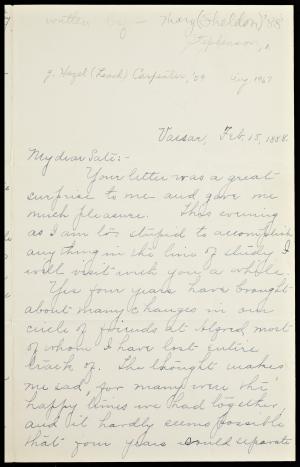 written by - Mary (Sheldon) '88
Stephenson,
g. Hazel (Leach) Carpenter, '09 Aug 1967
Vassar, Feb. 15, 1888.
My dear Pati:-
Your letter was a great
surprise to me and gave me
much pleasure. This evening
as I am too stupid to accomplish
anything in the line of study I
will visit with you a while.
Yes four years have brought
about many changes in our
circle of friends at Alfred, most
of whom I have lost entire
track of. The thought makes
me sad, for many were the
happy times we had together,
and it hardly seems possible
that four years could separate